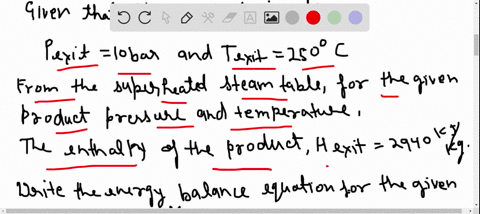 Given that
Pexit = 10bar and Texit = 250° C
From the superheated steam table, for the given
product pressure and temperature,
The enthalpy of the product, Hexit = 2940 kJ/kg.
Write the energy balance equation for the given